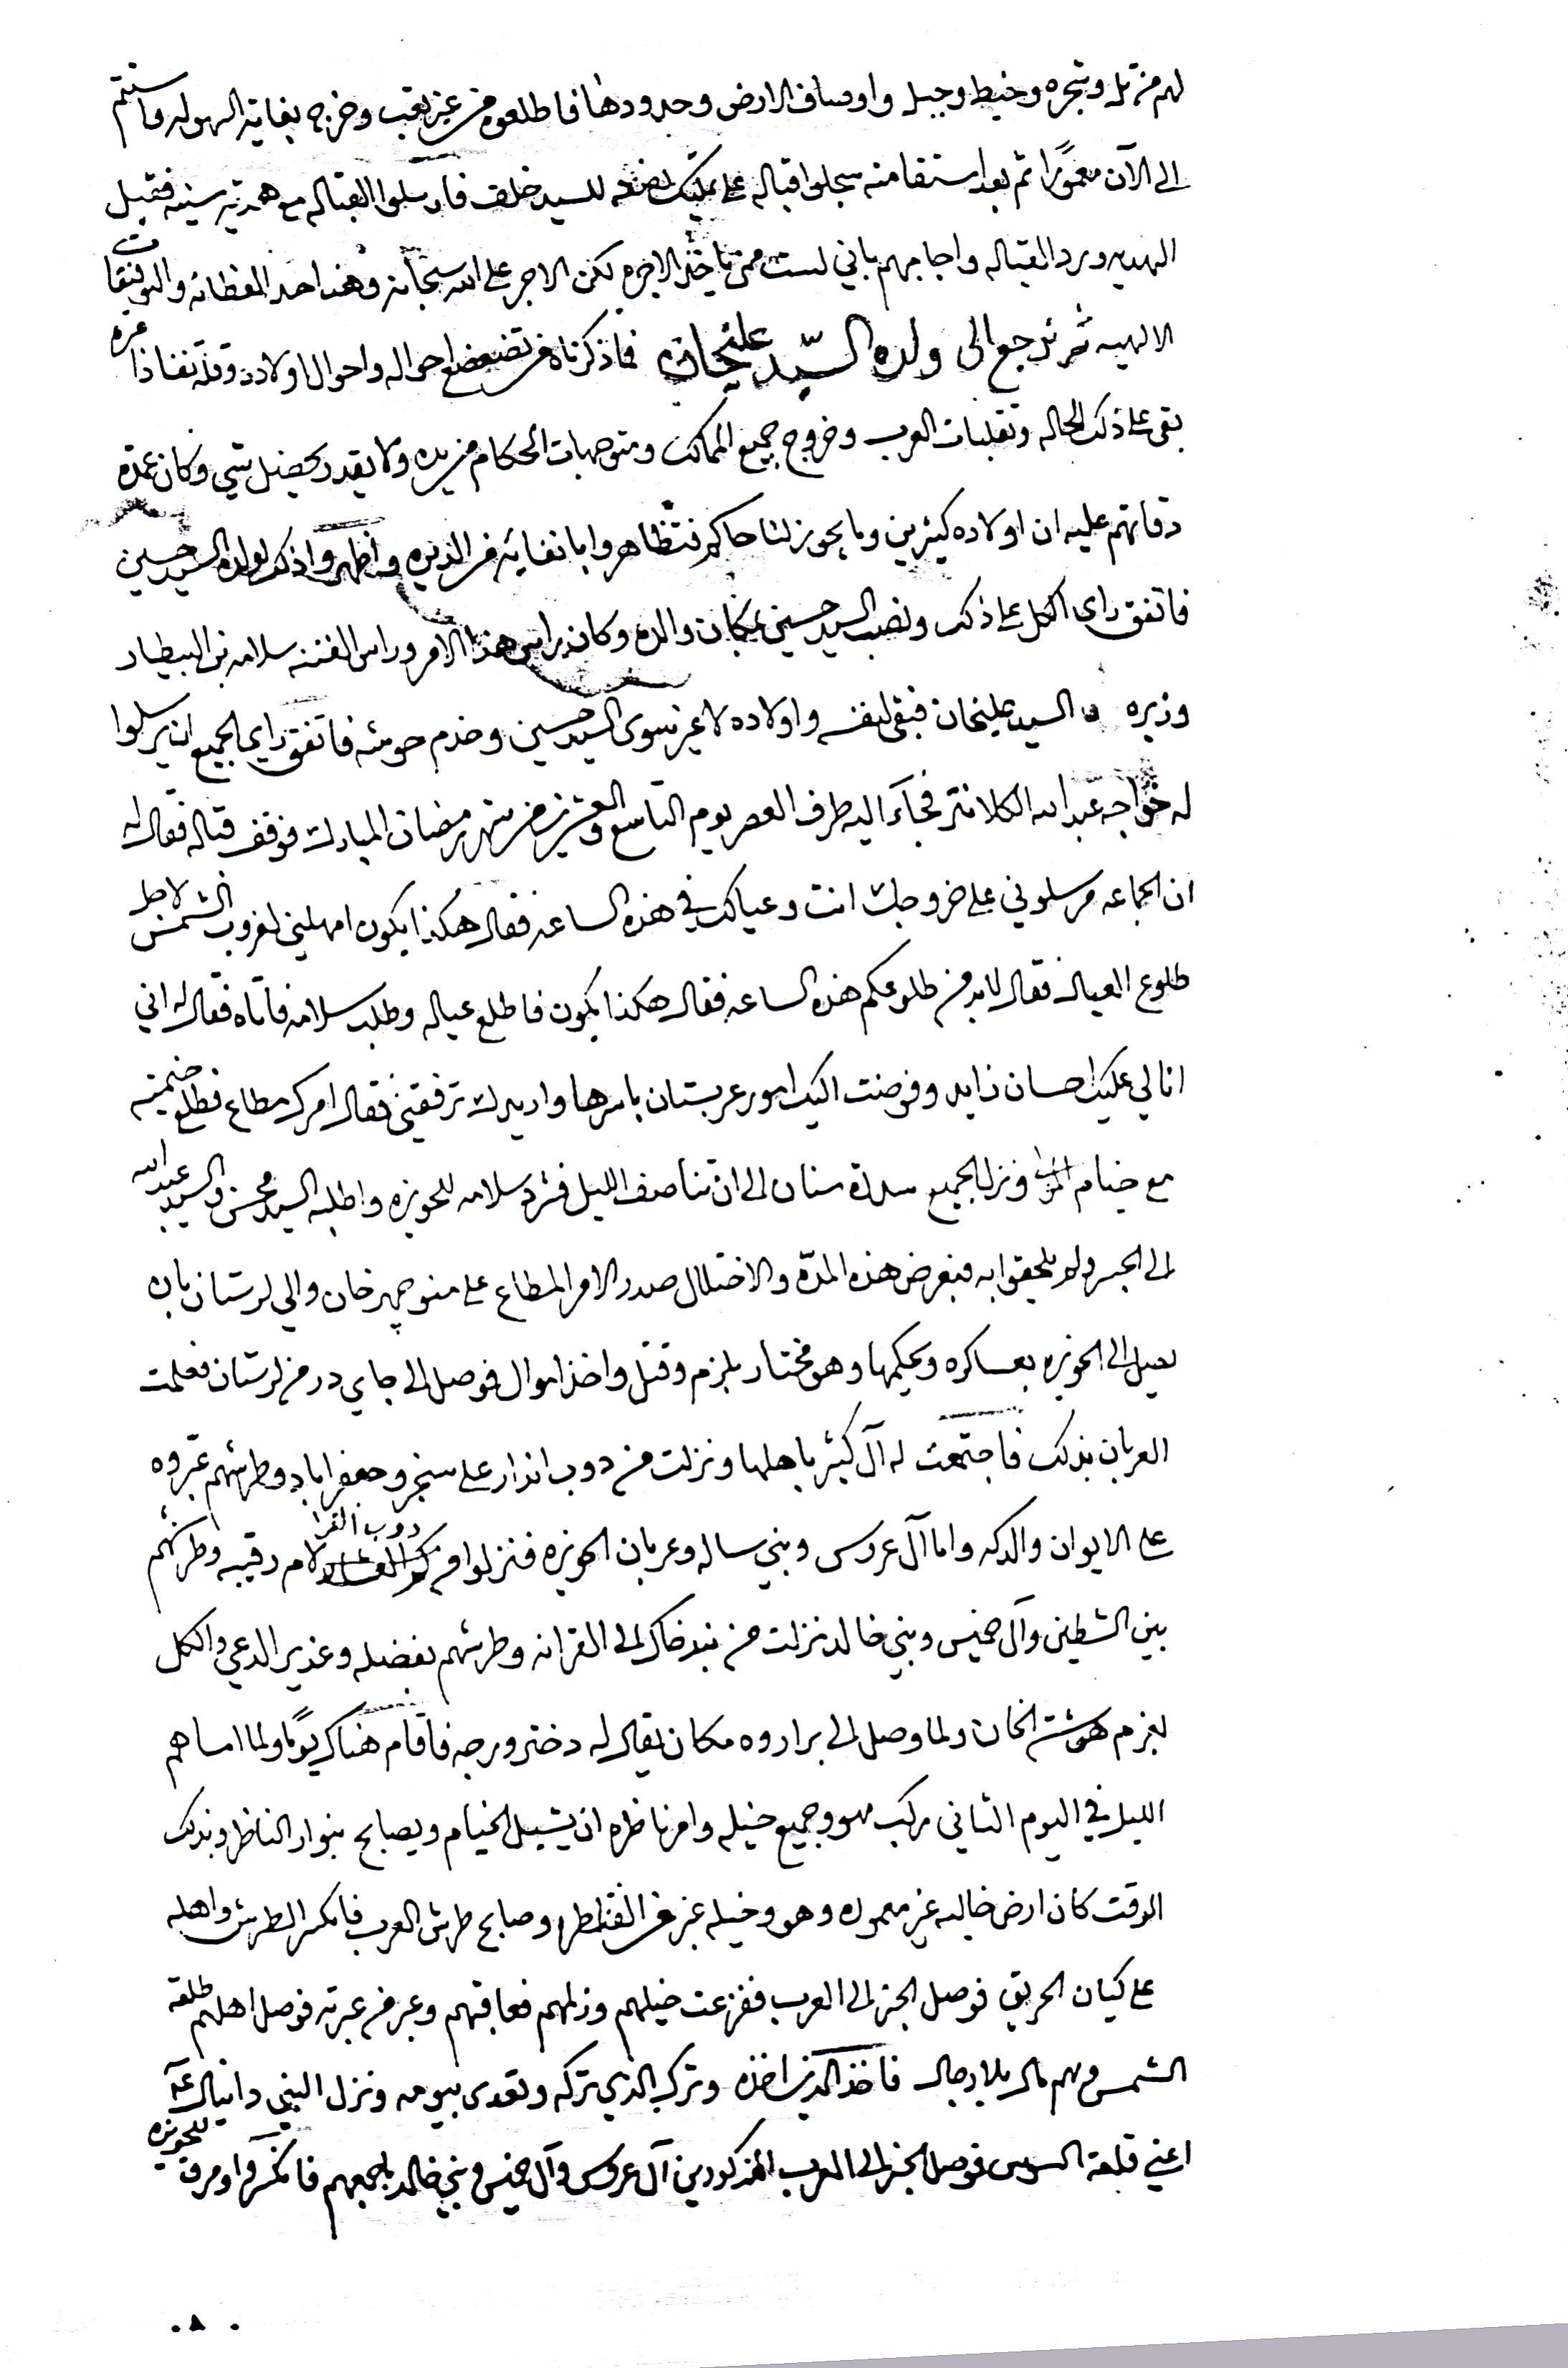 لهم من تل وشجره وخيط وجبل واوصاف الارض وحدودها فاطلعوه من غير تعب وخرج بغاية السهوله واستتم
الى الآن معمورًا ثم بعد استقامته سجلوا قباله على تمليك نصفه للسيد خلف فارسلوا القباله مع هديه سنيه فقبل
الهديه ورد القباله واجابهم باني لست ممن ياخذ الاجره لكن الاجر على الله سبحانه وهذا احد الفطانه والتوفيقات
الالهيه ثم نرجع الى ولده السيّد عليخان فما ذكرناه من تضعضع احواله واحوال اولاده وقلة نفاذ امره
بقى على ذلك الحاله وتقلبات العرب وخروج جميع الممالك ومتوجهات الحكام من يده ولا يقدر تحصيل شي وكان عمدة
دقاتهم عليه ان اولاده كثيرين وما يجوز لنا حاكم فتظاهروا بانفائه من الديره واظهروا ذلك لولده السيد حسين
فاتفق راى الكل على ذلك ونصب السيد حسين بمكان والده وكان راس هذا الامر وراس الفتنه سلامه بن البيطار
وزيره السيد عليخان فبقى لنفسه واولاده لا غير سوى السيد حسين وخدم حوشه فاتفق راي الجميع ان يرسلوا
له خواجه عبد الله الكلانتر فجآء اليه طرف العصر يوم التاسع والعشرين من شهر رمضان المبارك فوقف قباله فقال له
ان الجماعه مرسلوني على خروجك انت وعيالك في هذه الساعه فقال هكذا يكون امهليني لغروب الشمس لاجل
طلوع العيال فقال لا بد من طلوعكم هذه الساعه فقال هكذا يكون فاطلع عياله وطلب سلامه فاتاه فقال له اني
انا لي عليك احسان زايد وفوضت اليك امور عربستان باسرها واريدك ترفقني فقال امرك مطاع فطلع خيمته
مع خيام ونزل الجميع الى ان تناصف الليل فشرد سلامه للحويزه واطلبه السيد محسن والسيد عبد الله
الى الجسر ولم يلحقوا به فبغرض هذه المدّة والاختلال صدر الامر المطاع على منوچهر خان والي لرستان بان
يصل الى الحويزه بعساكره ويحكمها وهو مختار بلزم وقتل واخذ اموال فوصل الى جاي در من لرستان فعلمت
العربان بذلك فاجتمعت له آل كثير باهلها ونزلت من دوب اندار على سنجر وجعفراباد وطرشهم عبّروه
على الايوان والدكه واما آل عروس وبني ساله وعربان الحويزه فنزلوا من دوب القرا لام رقيبه وطرشهم
بين الشطين وآل خميس وبني خالد نزلت من بند خاك الى القرانه وطرشهم بفضله وغدير الدعي والكل
لعزم هوشة الخان ولما وصل الى براروه مكان يقال له دختر ورجه فاقام هناك يومًا ولما امساهم
الليل في اليوم الثاني ركب هو وجميع خيله وامر ناظره ان يشيل الخيام ويصابح بنوار الناظر وبذلك
الوقت كان ارض خاليه غير معموره وهو وخيله عبر من القناطر وصابح طرش العرب فانكسر الطرش واهله
على كيان الحريق فوصل الخبر الى العرب ففزعت خيلهم وزلمهم فعاقبهم وعبر من عبرته فوصل اهلهم طلعة
الشمس وهم مال بلا رجال فاخذ الذي اخذه وترك الذي تركه وتعدى بيومه ونزل النبي دانيال عم
اعني قلعة السوس فوصل الخبر الى العرب المذكورين آل عروس وآل خميس وبني خالد باجمعهم فانكسروا ومرق للحويزه
٨٠